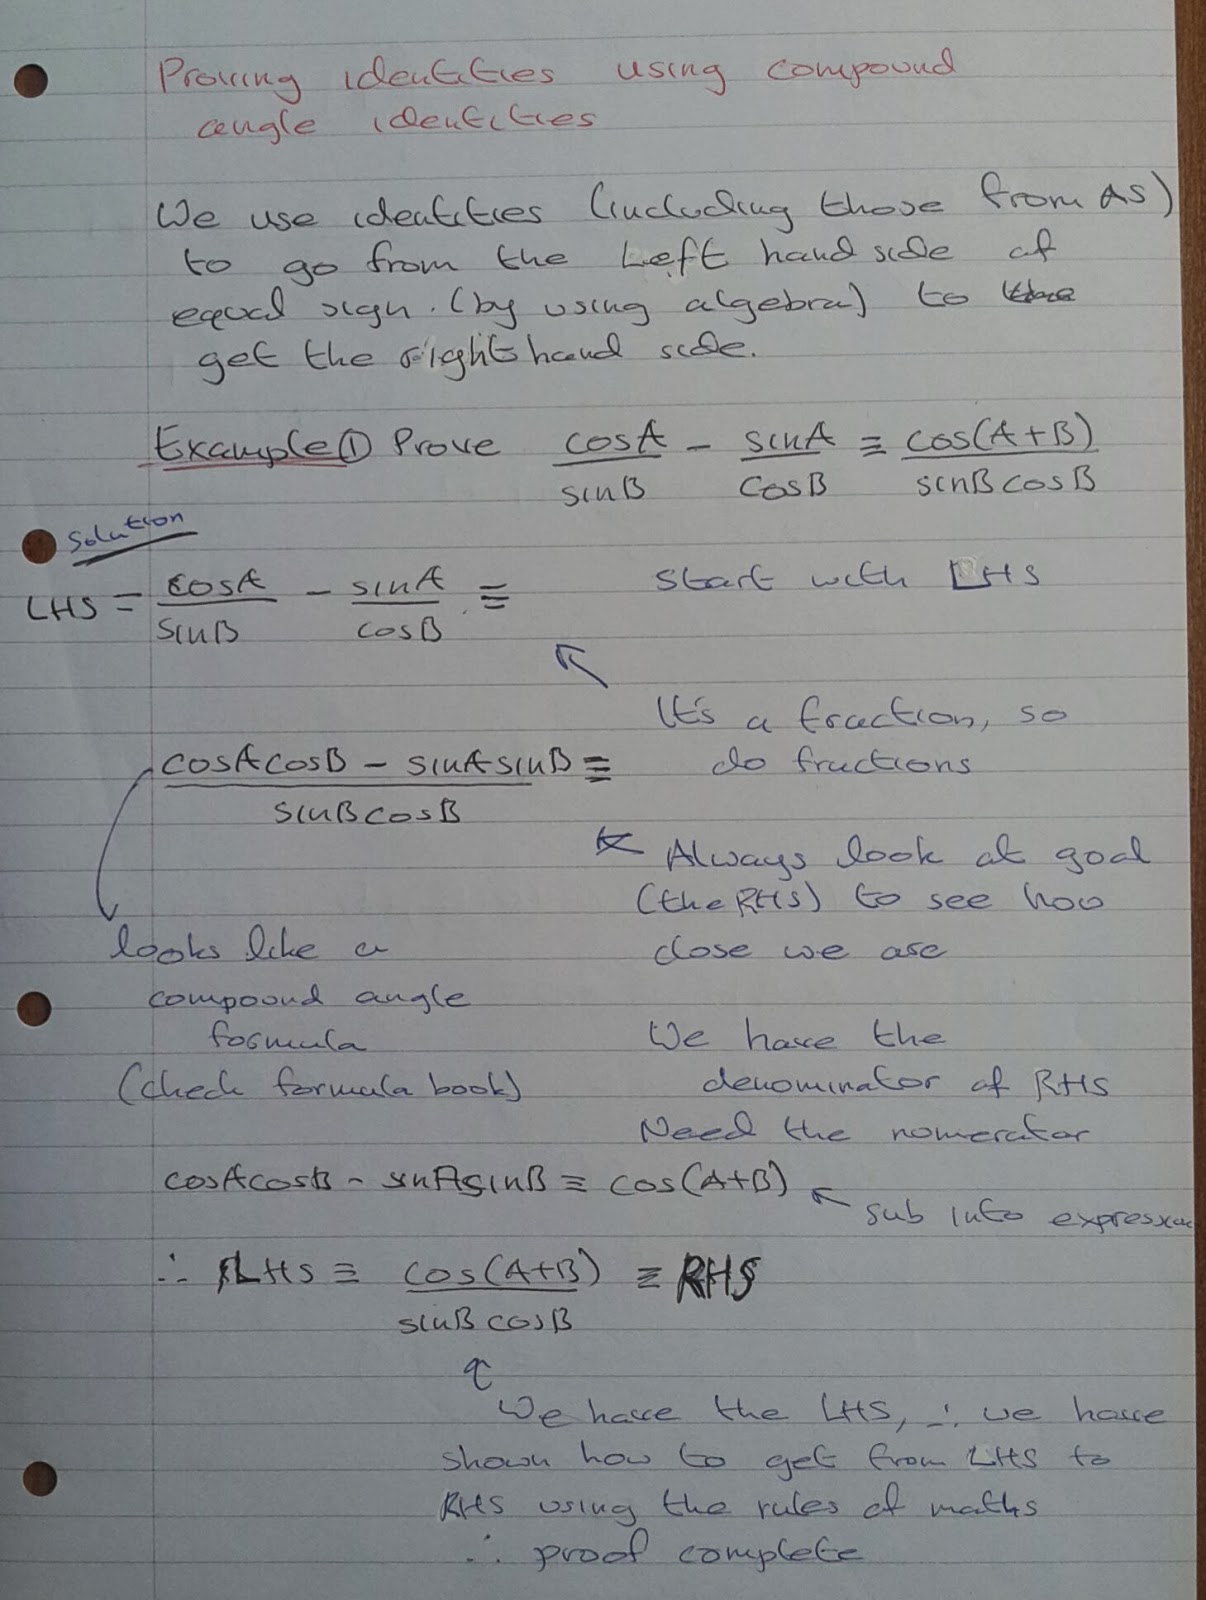 Proving identities using compound
angle identities
We use identities (including those from AS)
to go from the Left hand side of
equal sign. (by using algebra) to the
get the right hand side.
Example ① Prove cosA/sinB - sinA/cosB ≡ cos(A+B)/sinBcosB
Solution
LHS = cosA/sinB - sinA/cosB ≡
Start with LHS
It's a fraction, so
do fractions
cosAcosB - sinAsinB/sinBcosB ≡
Always look at goal
(the RHS) to see how
close we are
looks like a
compound angle
formula
(check formula book)
We have the
denominator of RHS
Need the numerator
cosAcosB - sinAsinB ≡ cos(A+B)
sub into expression
∴ LHS ≡ cos(A+B)/sinBcosB ≡ RHS
We have the LHS, ∴ we have
shown how to get from LHS to
RHS using the rules of maths
∴ proof complete